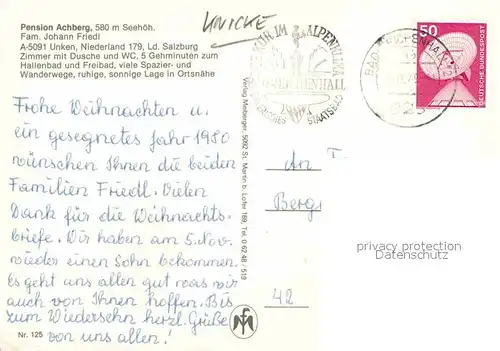 Pension Achberg, 580 m Seehöh.
Fam. Johann Friedl
A-5091 Unken, Niederland 179, Ld. Salzburg
Zimmer mit Dusche und WC, 5 Gehminuten zum
Hallenbad und Freibad, viele Spazier- und
Wanderwege, ruhige, sonnige Lage in Ortsnähe
Frohe Weihnachten u.
ein gesegnetes Jahr 1980
wünschen Ihnen die beiden
Familien Friedl. Vielen
Dank für die Weihnachts-
briefe. Wir haben am 5. Nov.
wieder einen Sohn bekommen.
Es geht uns allen gut was wir
auch von Ihnen hoffen. Bis
zum Wiedersehn herzl. Grüße
von uns allen!
Nr. 125
Verlag Meiberger, 5092 St. Martin b. Lofer 189, Tel. 0 62 48 / 519
KUR IM ALPENKLIMA
STAATSBAD
BAD REICHENHALL
50
DEUTSCHE BUNDESPOST
An
Berg
42
privacy protection
Datenschutz